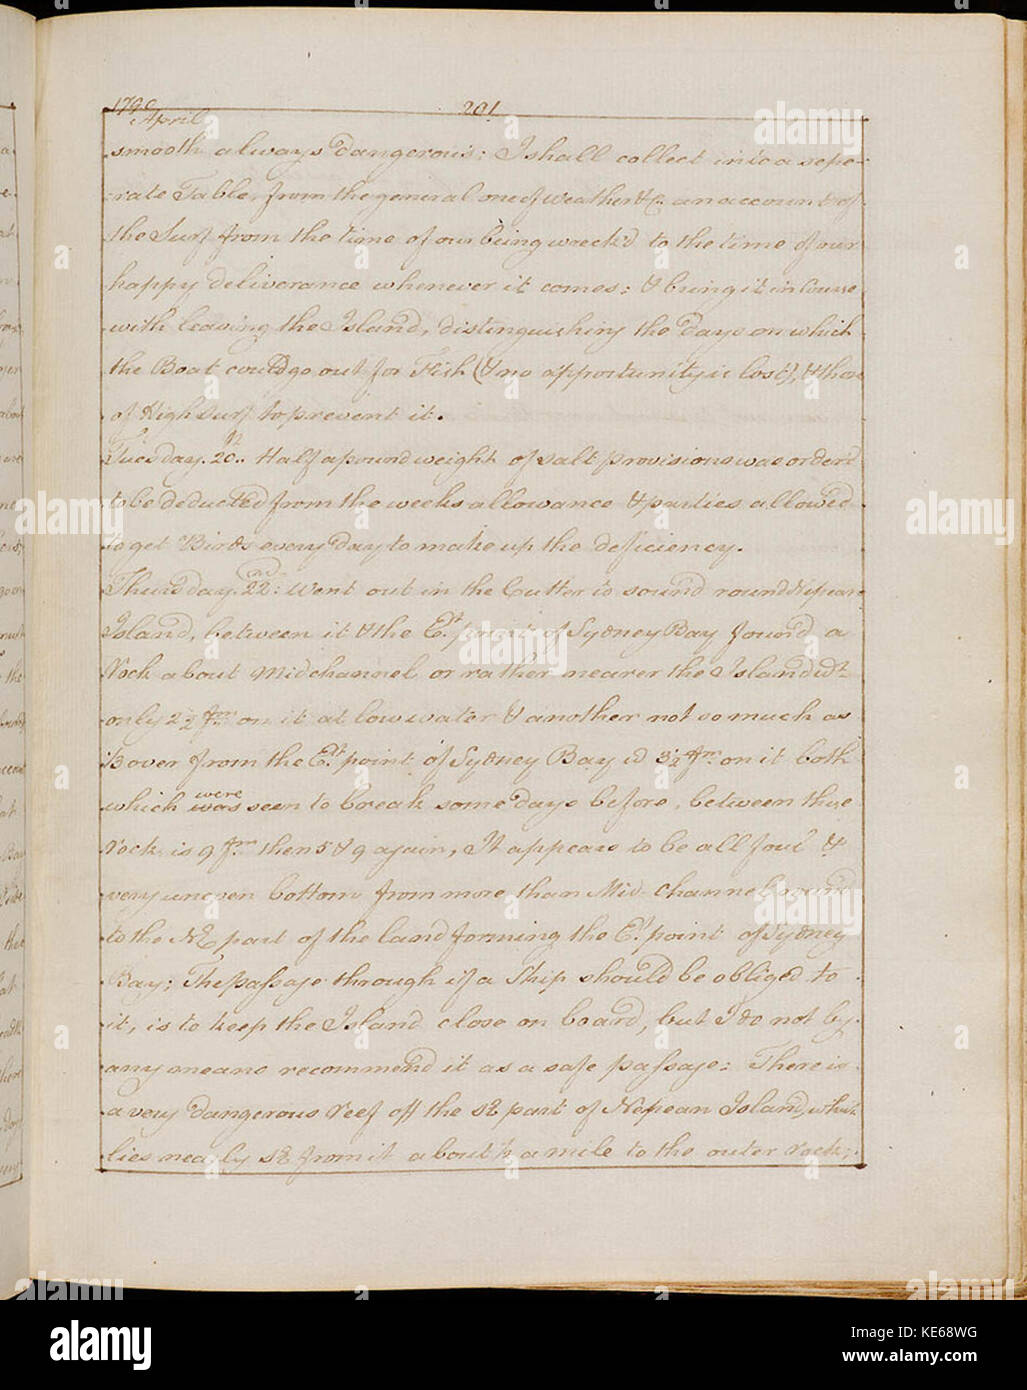 1790 201
April
smooth always dangerous; I shall collect into a sepe-
rate Table, from the general one of Weather &c. an account of
the Surf from the time of our being wreck'd to the time of our
happy deliverance whenever it comes: & bring it in Course
with leaving the Island, distinguishing the days on which
the Boat could go out for Fish (& no opportunity is lost), & those
of High Surf to prevent it.
Tuesday. 20th.. Half a pound weight of salt provisions was order'd
to be deducted from the weeks allowance & parties allowed
to get Birds every day to make up the deficiency.
Thursday. 22nd: Went out in the Cutter to sound round Nepean
Island, between it & the Et. point of Sydney Bay found a
Rock about Midchannel or rather nearer the Island wth
only 2 1/2 fm on it at low water & another not so much as
1/3 over from the Et. point of Sydney Bay wd 3 1/2 fm on it both
which were was seen to break some days before, between these
rock is 9 fm then 5 & 9 again, It appears to be all foul &
very uneven bottom from more than Mid-Channel round
to the NE part of the land forming the Et. point of Sydney
Bay; The passage through if a Ship should be obliged to
it, is to keep the Island close on board, but I do not by
any means recommend it as a safe passage: There is
a very dangerous reef off the SE part of Nepean Island, which
lies nearly SE from it about 1/2 a mile to the outer rock;
alamy
Image ID: KE68WG
www.alamy.com